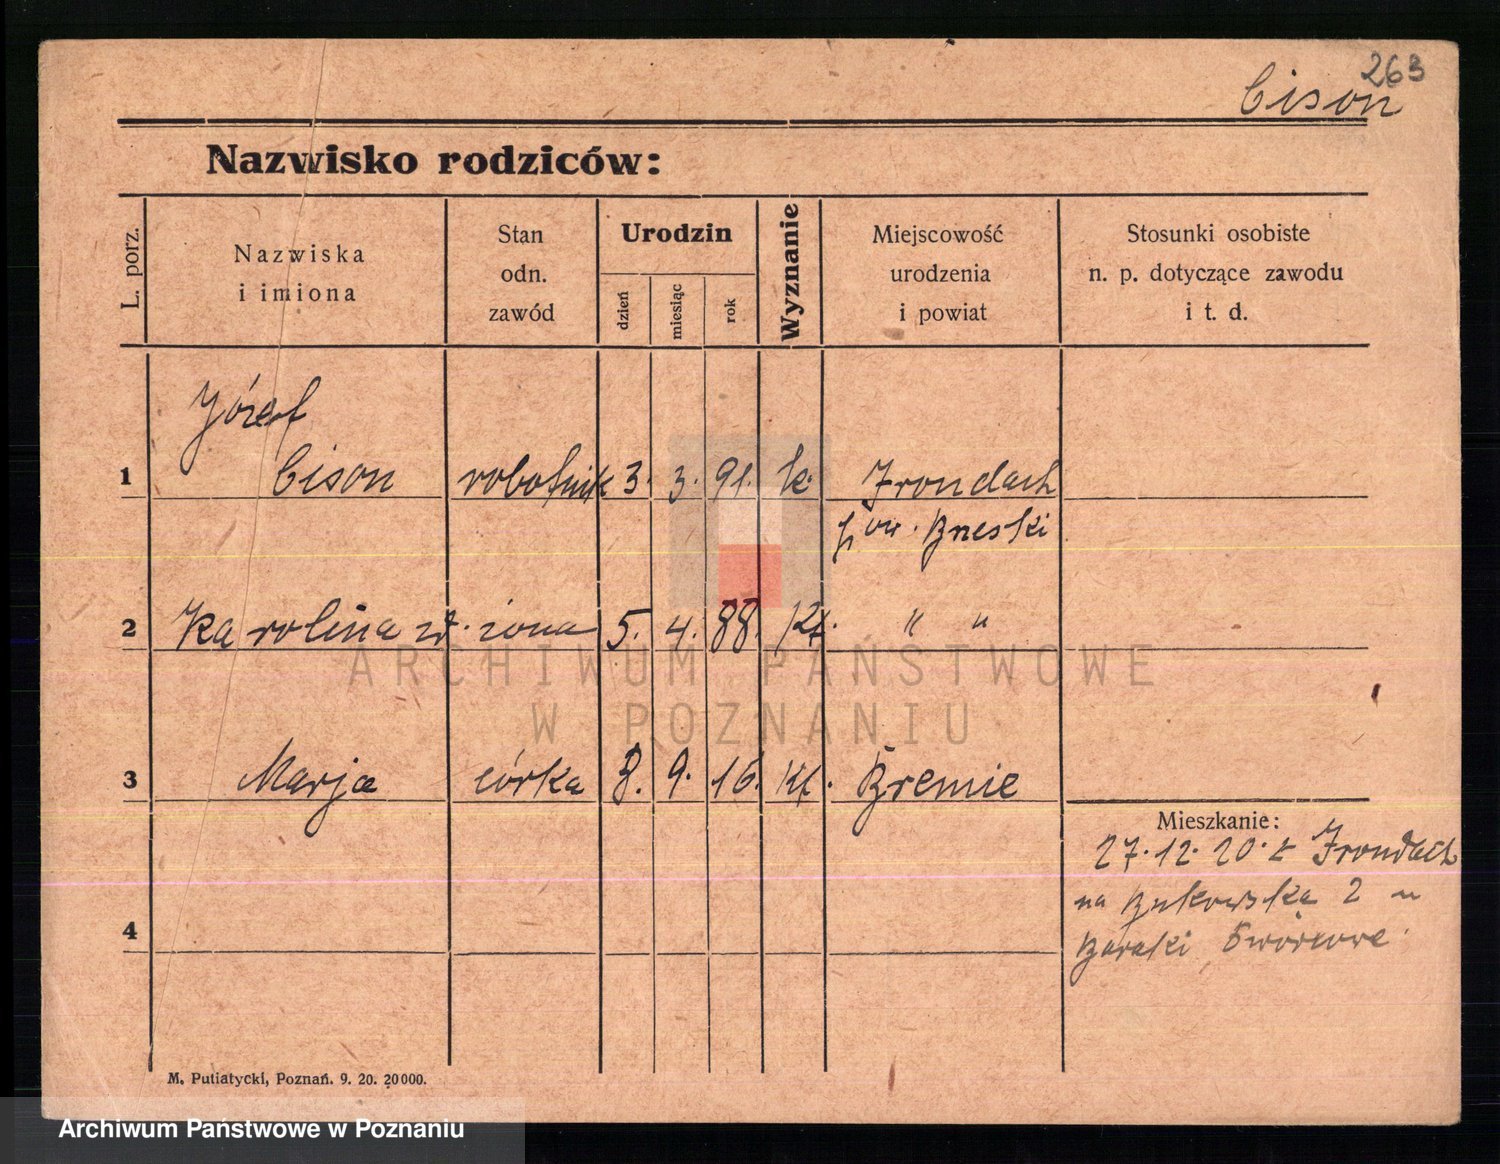 263
Cison
Nazwisko rodziców:
L. porz.
Nazwiska
i imiona
Stan
odn.
zawód
Urodzin
dzień
miesiąc
rok
Wyznanie
Miejscowość
urodzenia
i powiat
Stosunki osobiste
n. p. dotyczące zawodu
i t. d.
Józef
1 Cison robotnik 3. 3. 91. k. Frondach
pow. Brzeski
2 Karolina żona 5. 4. 88. Kt. " "
3 Marja córka 8. 9. 16. Kt. Bremie
Mieszkanie:
27.12.20. z Frondach
na Bukowską 2
4
Baraki Dworcowe
M. Putiatycki, Poznań. 9. 20. 20000.
ARCHIWUM PAŃSTWOWE
W POZNANIU
Archiwum Państwowe w Poznaniu